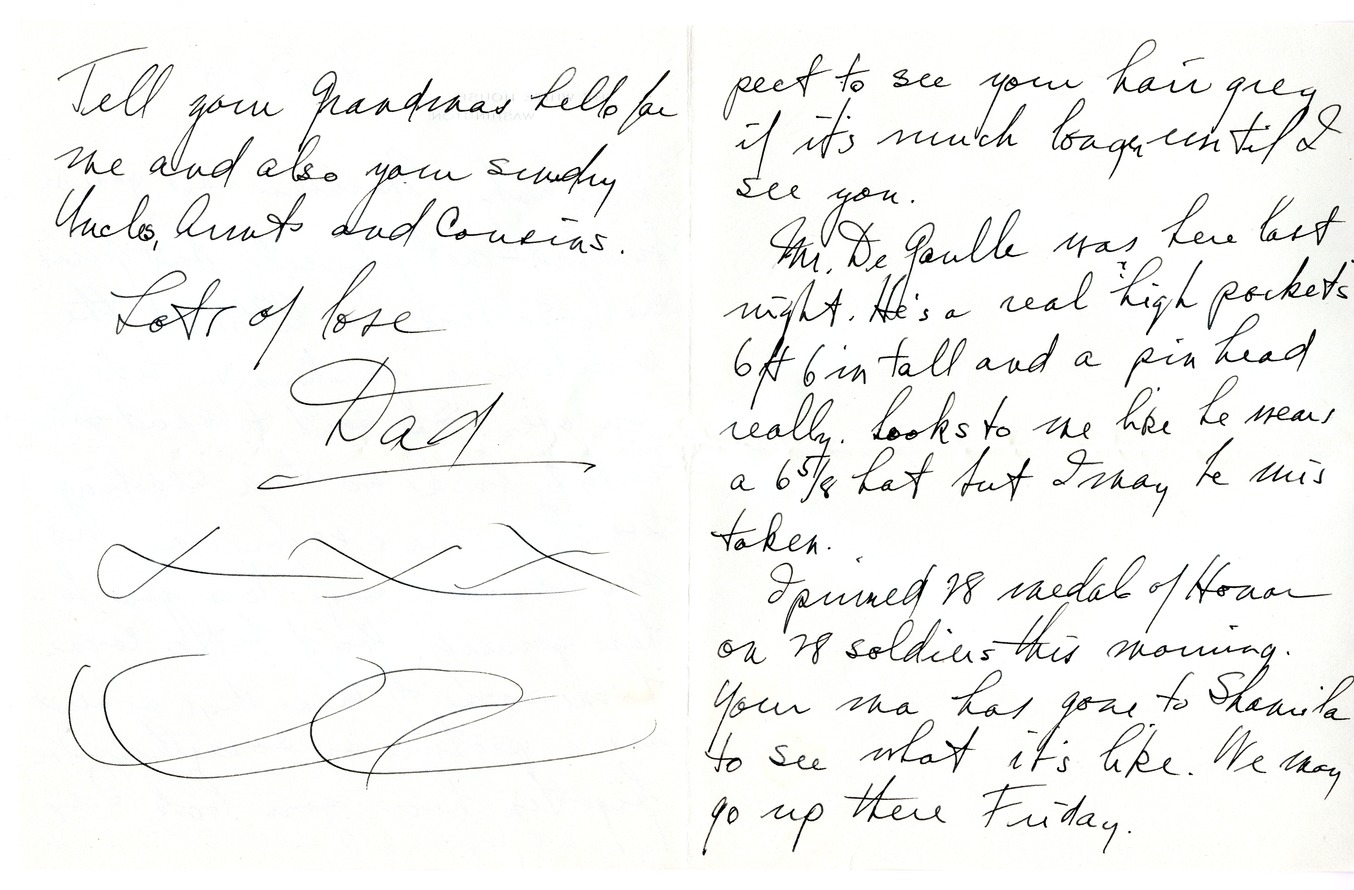 Tell your Grandmas hello for
me and also your sundry
Uncles, Aunts and Cousins.
Lots of love
Dad
pect to see your hair grey
if it's much longer until I
see you.
Mr. De Gaulle was here last
night. He's a real "high pockets"
6 ft 6 in tall and a pin head
really. Looks to me like he wears
a 6 5/8 hat but I may be mis
taken.
I pinned 28 medals of Honor
on 28 soldiers this morning.
Your ma has gone to
to see what it's like. We may
go up there Friday.